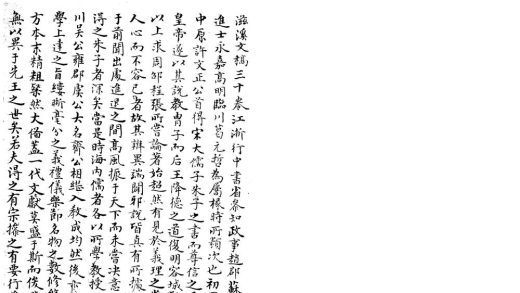 滋溪文稿三十卷江浙行中書省叅知政事趙郡蘇
進士永嘉高明臨川葛元哲為屬掾時所類次也初
中原許文正公首得宋大儒子朱子之書而尊信之
皇帝遂以其說教胄子而后王降德之道復明容城
以上求周邵程張所嘗論著始超然有見於義理之當
人心而不容已者故其辯異端闢邪說皆真有所據
于前聞出處進退之間高風振于天下而未嘗决意
得之朱子者深矣當是時海内儒者各以所學教授
川吳公雍郡虞公大名齊公相繼入教成均然後
學上達之旨縷晰毫分之義禮儀樂節名物之數修
方本末精粗粲然大備盖一代文獻莫盛于斯而俊
無以異于先王之世矣若夫得之有宗操之有要行